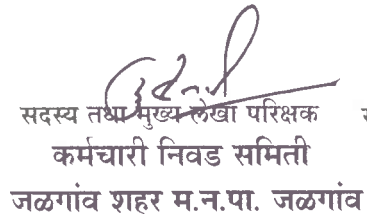 सदस्य तथा मुख्य लेखा परिक्षक
कर्मचारी निवड समिती
जळगांव शहर म.न.पा. जळगांव